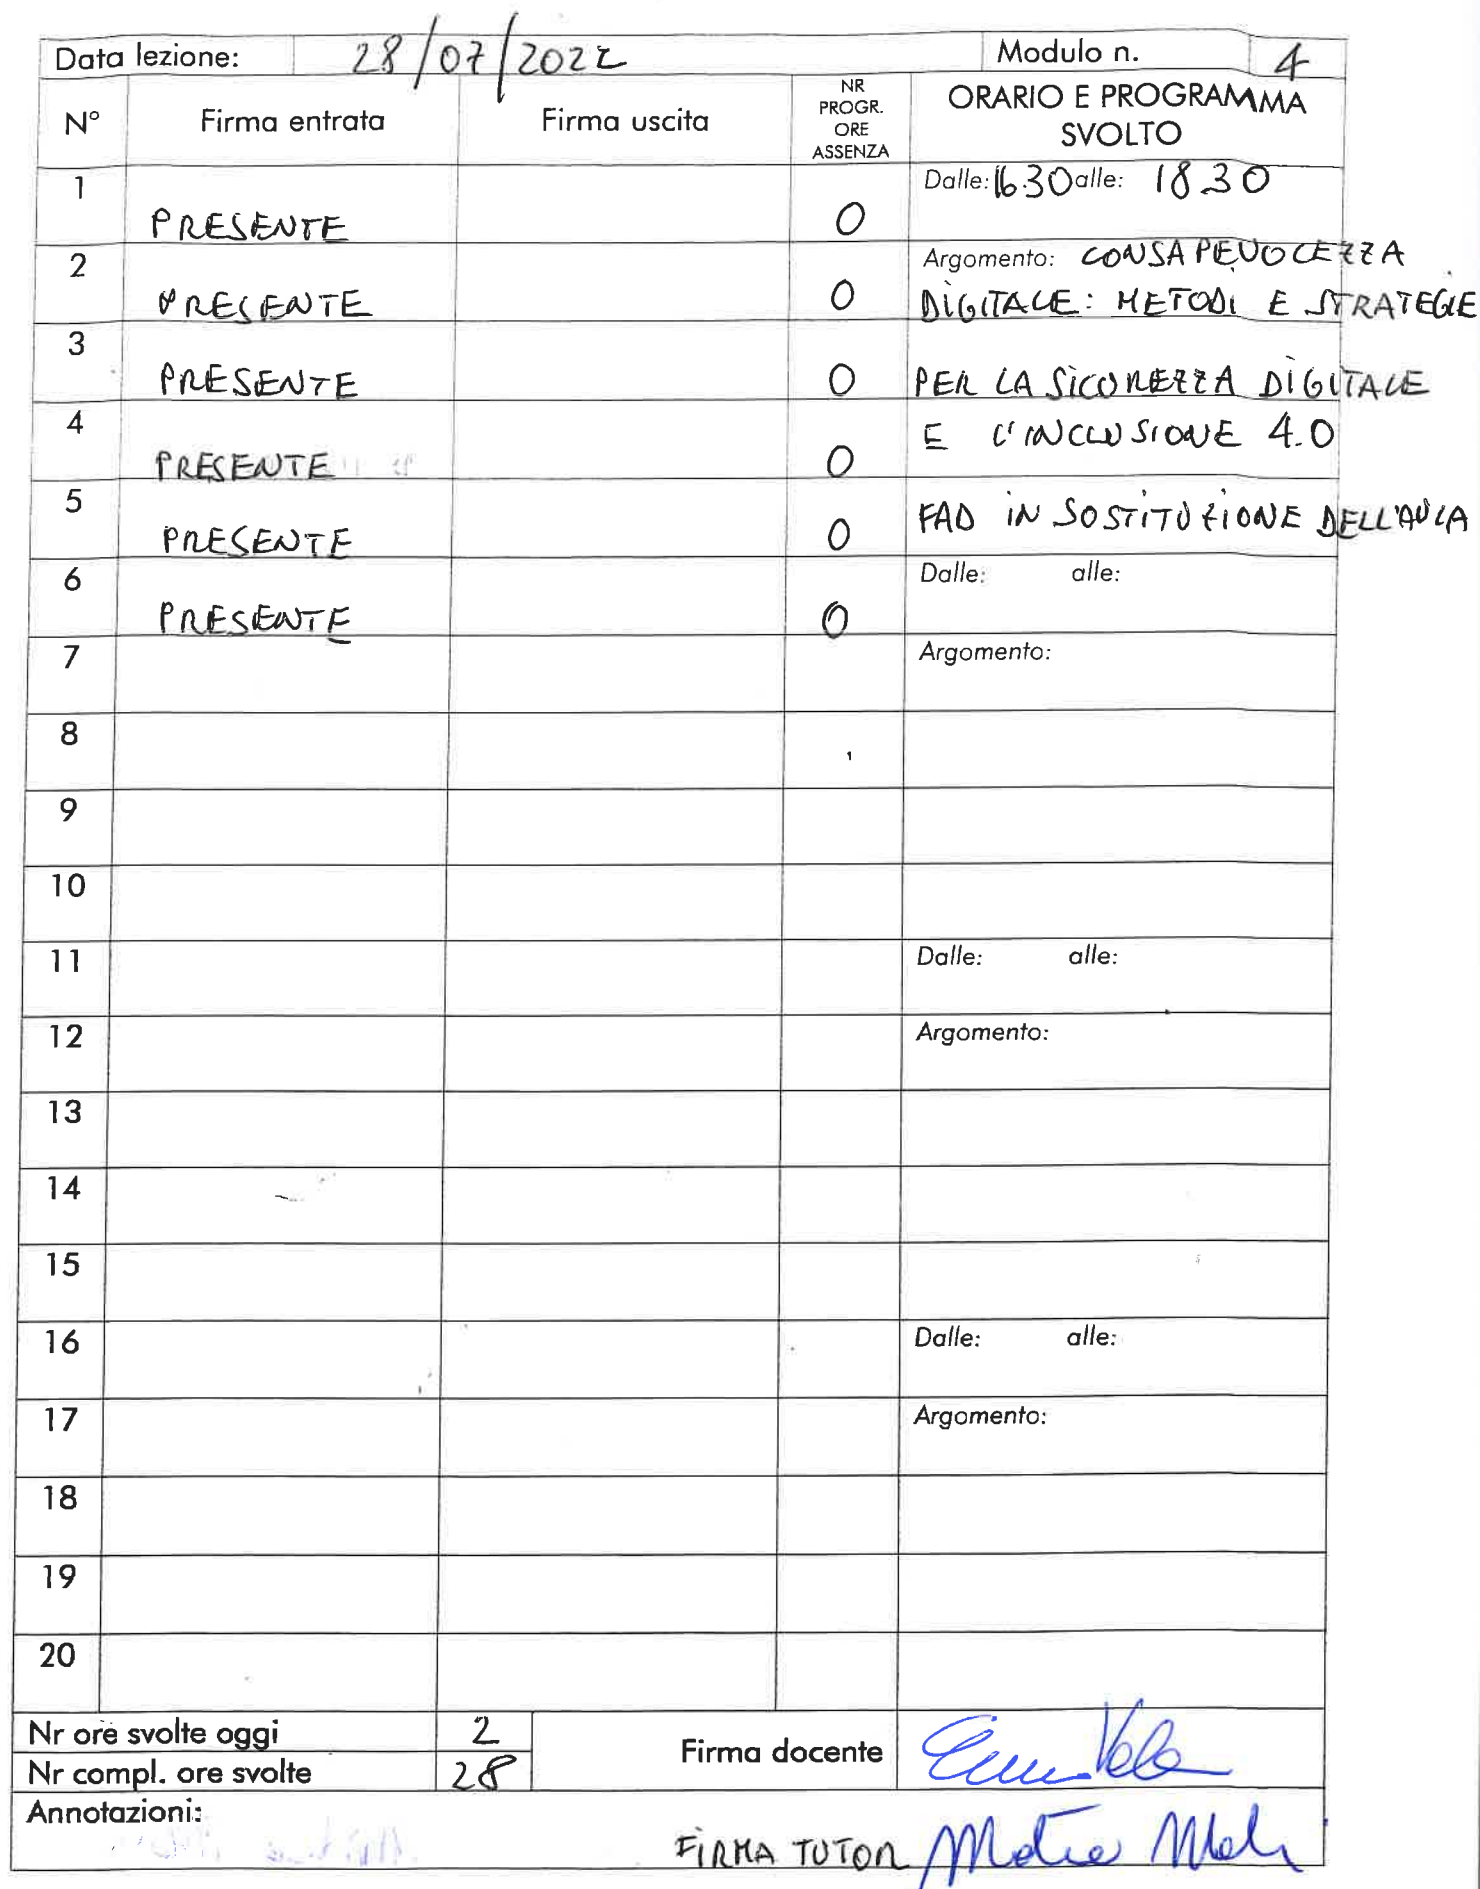 Data lezione: 28/07/2022 Modulo n. 4
N° Firma entrata Firma uscita NR PROGR. ORE ASSENZA ORARIO E PROGRAMMA SVOLTO
1 PRESENTE 0 Dalle: 16.30 alle: 18.30
2 PRESENTE 0 Argomento: CONSAPEVOLEZZA
DIGITALE: METODI E STRATEGIE
3 PRESENTE 0 PER LA SICUREZZA DIGITALE
4 PRESENTE 0 E L'INCLUSIONE 4.0
5 PRESENTE 0 FAD IN SOSTITUZIONE DELL'AULA
6 PRESENTE 0 Dalle: alle:
7 Argomento:
8
9
10
11 Dalle: alle:
12 Argomento:
13
14
15
16 Dalle: alle:
17 Argomento:
18
19
20
Nr ore svolte oggi 2 Firma docente
Nr compl. ore svolte 28
Annotazioni:
FIRMA TUTOR